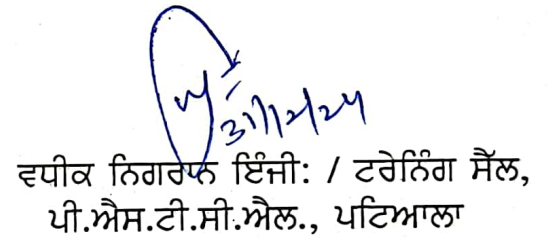 31/12/24
ਵਧੀਕ ਨਿਗਰਾਨ ਇੰਜੀ: / ਟਰੇਨਿੰਗ ਸੈੱਲ,
ਪੀ.ਐਸ.ਟੀ.ਸੀ.ਐਲ., ਪਟਿਆਲਾ